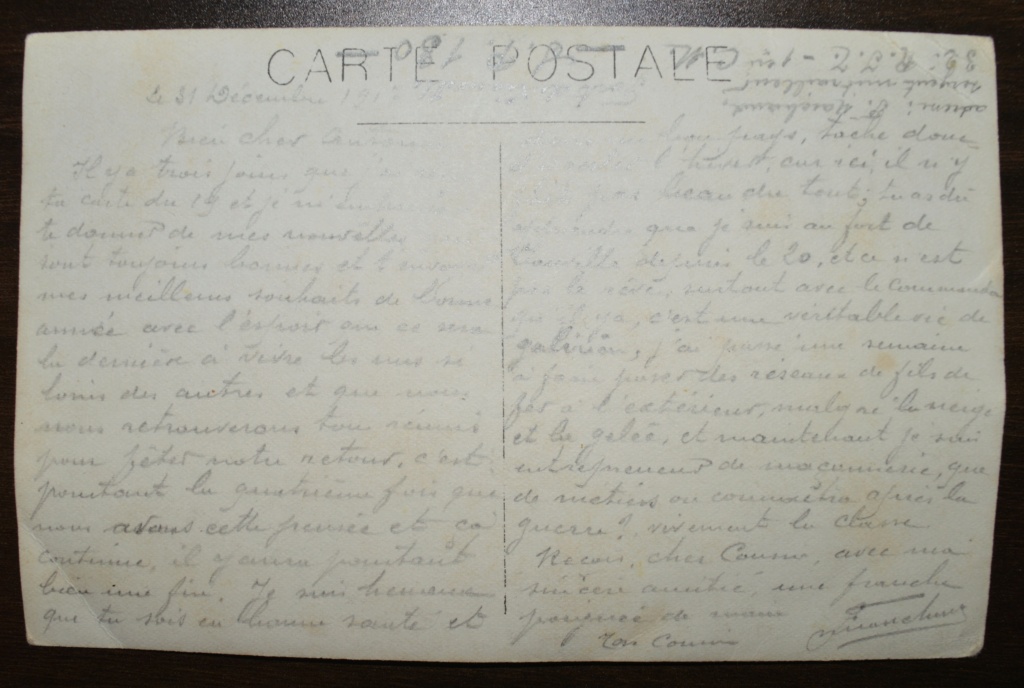 CARTE POSTALE
le 31 Décembre 191
Bien cher
Il y a trois jours que j'ai
ta carte du 19 et je m'empresse
te donner de mes nouvelles
sont toujours bonnes et t'envoie
mes meilleurs souhaits de bonne
année avec l'espoir que ce sera
la dernière à vivre les uns si
loins des autres et que nous
nous retrouverons tous réunis
pour fêter notre retour, c'est
pourtant la quatrième fois que
nous avons cette pensée et ça
continue, il y aura pourtant
bien une fin. Je suis heureux
que tu sois en bonne santé et
bon pays, tache donc
l'hiver, car ici, il n'y
pas beau du tout; tu as dû
que je suis au fort de
depuis le 20, et ce n'est
pas le rêve, surtout avec le Commandant
qu'il y a, c'est une véritable vie de
galérien, j'ai passé une semaine
à faire poser des réseaux de fils de
fer à l'extérieur, malgré la neige
et la gelée, et maintenant je suis
entrepreneur de maçonnerie, que
de métiers on connaîtra après la
guerre? vivement la classe
Reçois, cher Cousin, avec ma
sincère amitié, une franche
poignée de main
Ton Cousin
adresse:
sergent mitrailleur